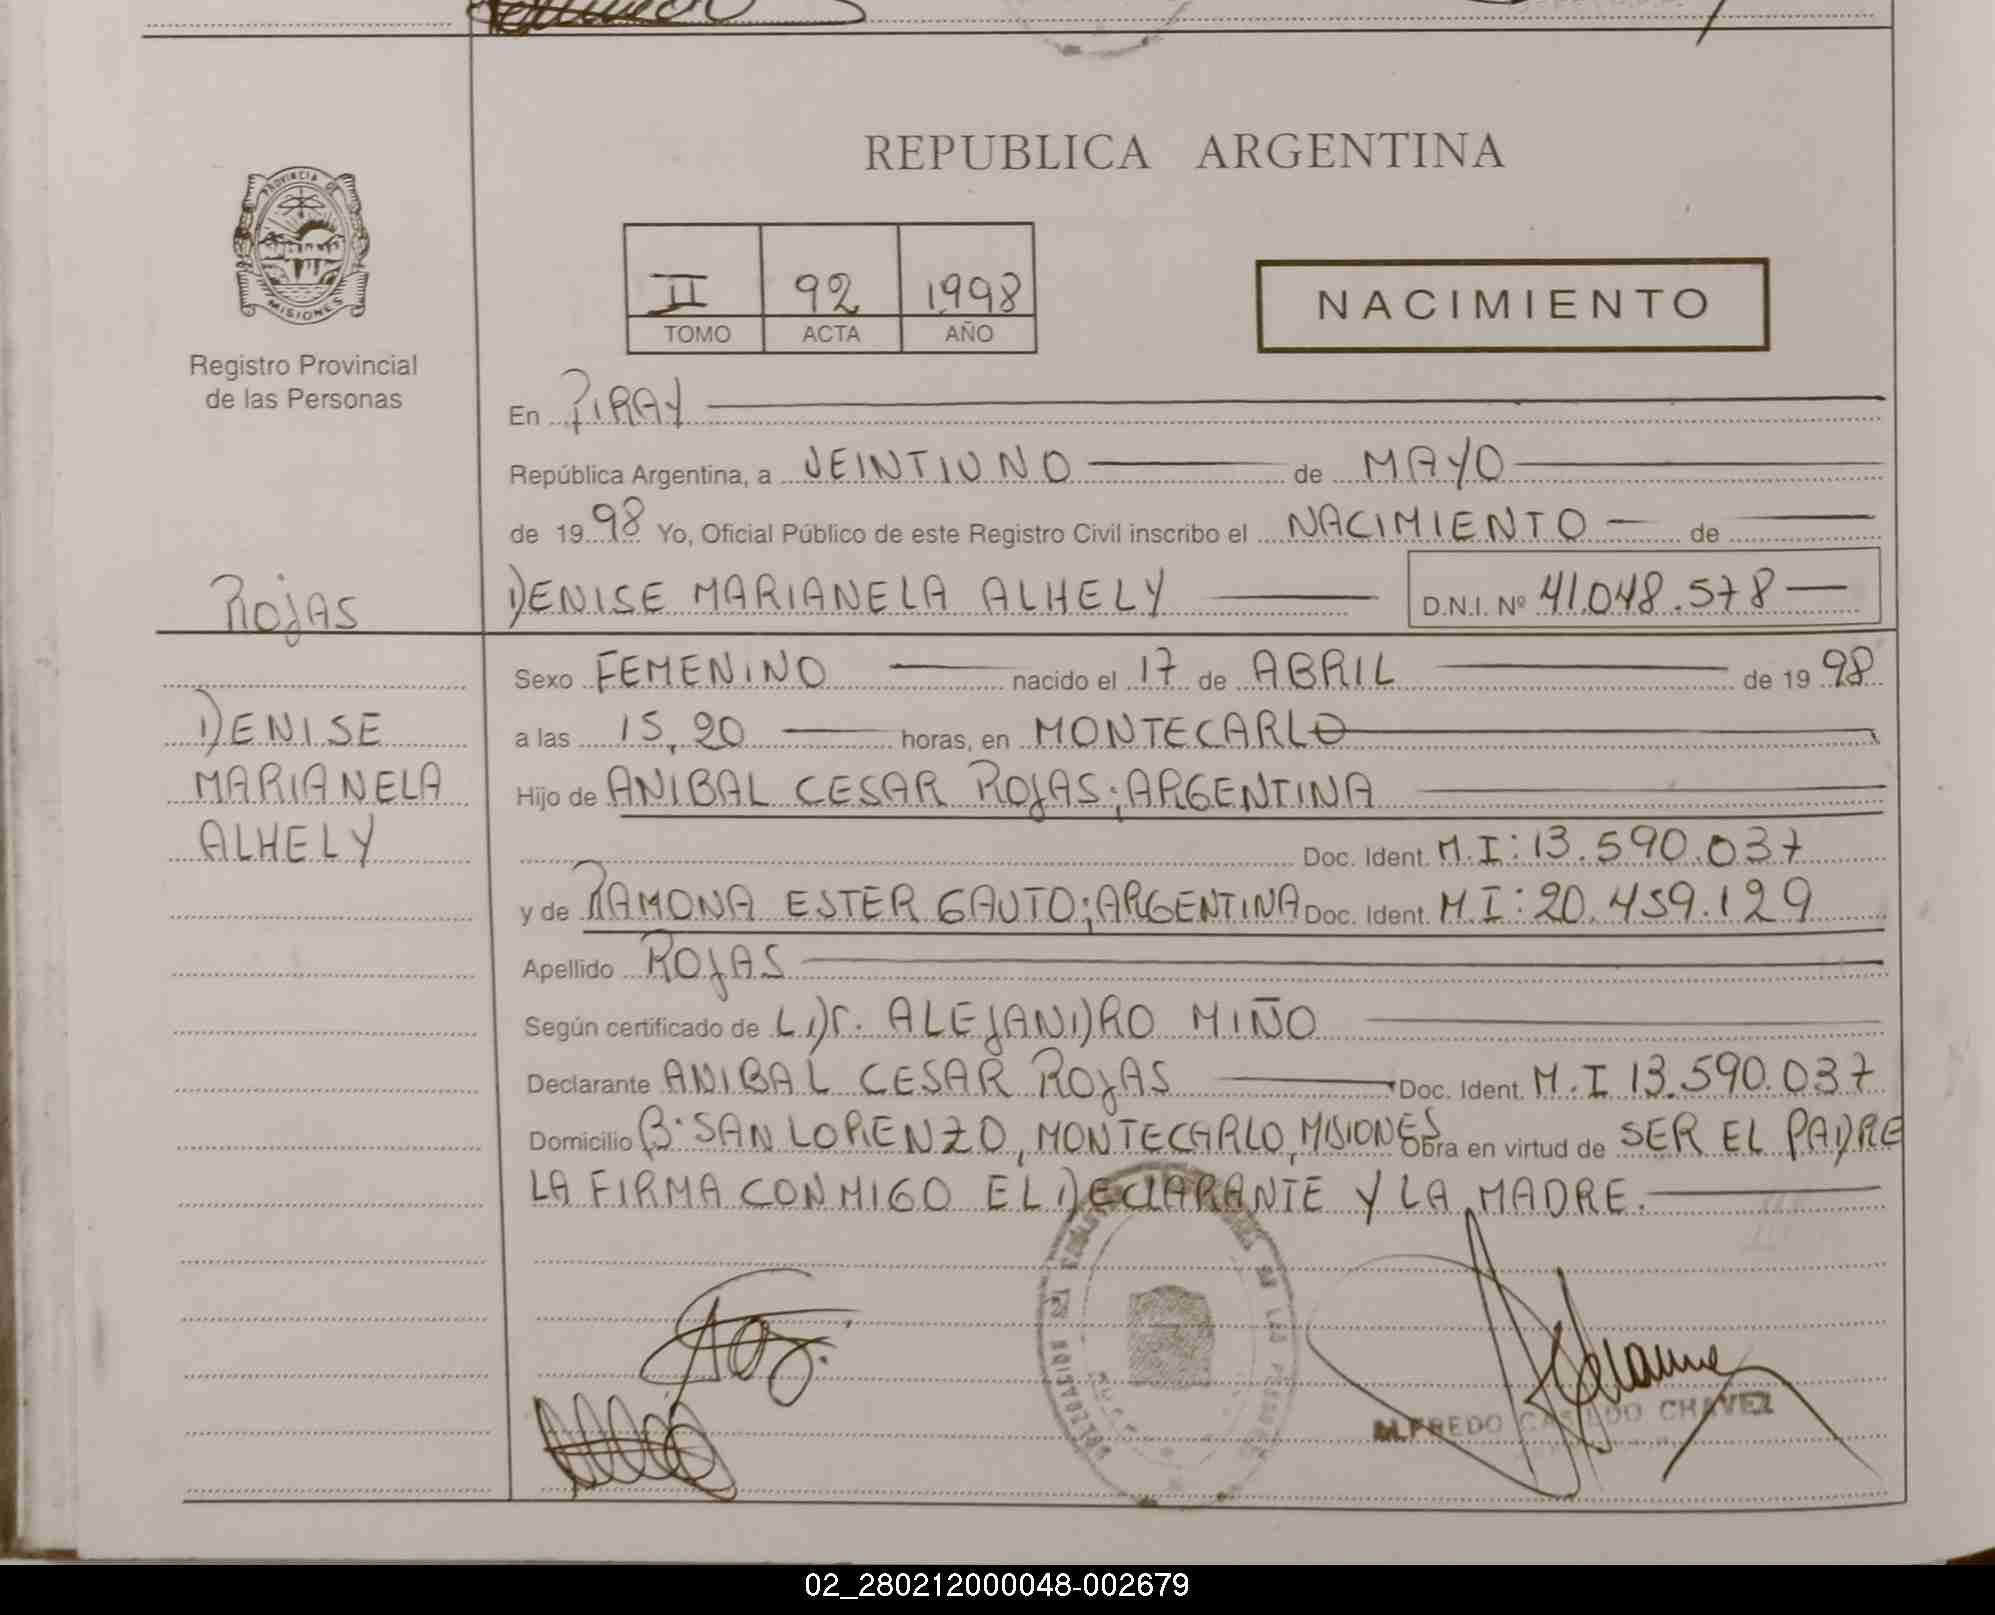 REPUBLICA ARGENTINA
PROVINCIA DE
MISIONES
Registro Provincial
de las Personas
II 92 1998
TOMO ACTA AÑO
NACIMIENTO
En PIRAY
República Argentina, a VEINTIUNO de MAYO
de 1998 Yo, Oficial Público de este Registro Civil inscribo el NACIMIENTO de
ROJAS
DENISE MARIANELA ALHELY D.N.I. Nº 41.048.578
DENISE
MARIANELA
ALHELY
Sexo FEMENINO nacido el 17 de ABRIL de 1998
a las 15,20 horas, en MONTECARLO
Hijo de ANIBAL CESAR ROJAS; ARGENTINA
Doc. Ident. M.I: 13.590.037
y de RAMONA ESTER GAUTO; ARGENTINA Doc. Ident. M.I: 20.459.129
Apellido ROJAS
Según certificado de L Dr. ALEJANDRO MIÑO
Declarante ANIBAL CESAR ROJAS Doc. Ident. M.I 13.590.037
Domicilio B. SAN LORENZO, MONTECARLO, MISIONES Obra en virtud de SER EL PADRE
LA FIRMA CONMIGO EL DECLARANTE Y LA MADRE.
ALFREDO CASILDO CHAVEZ
02_280212000048-002679